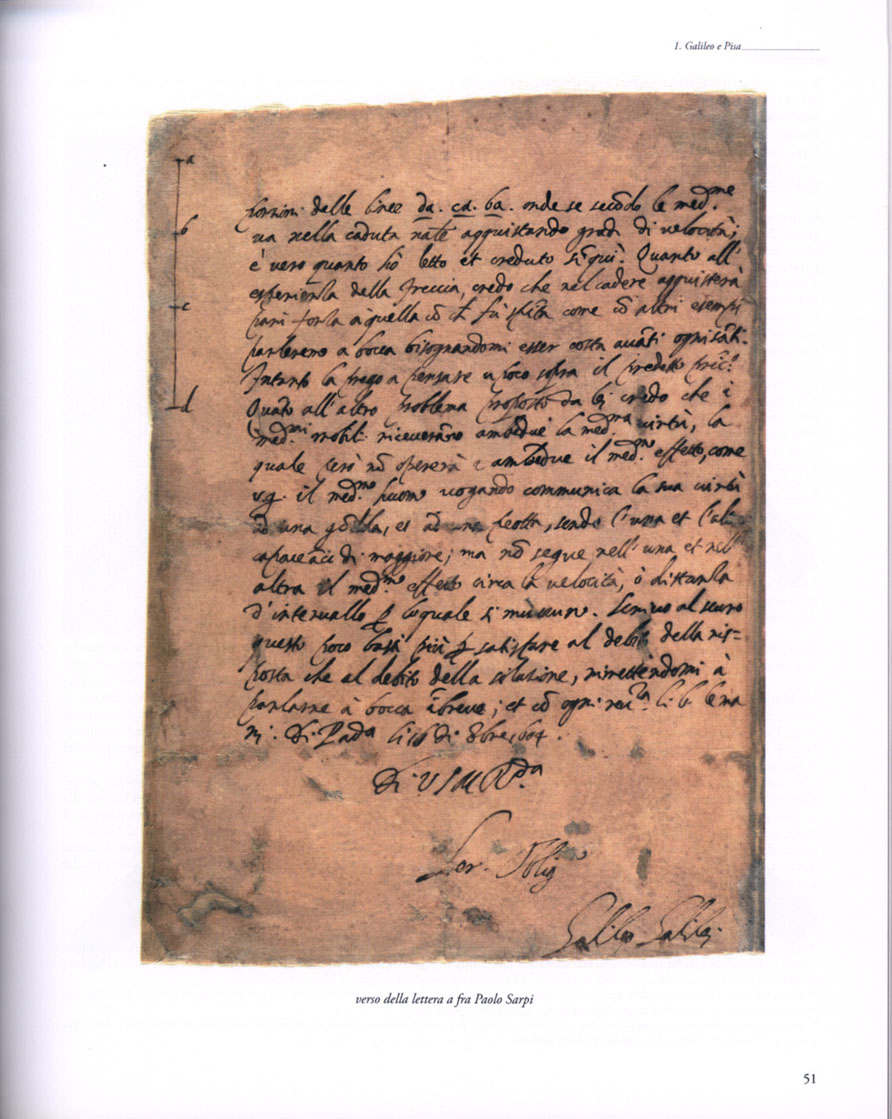 1. Galileo e Pisa
a
b
c
d
portioni delle linee da. ca. ba. onde se secõdo le med.me
va nella caduta nãle acquistando gradi di velocità;
è vero quanto hò letto et creduto sĩ quì. Quanto all'
esperienza della freccia, credo che nel cadere acquisterà
pari forza a quella cõ che fù spĩta come cõ altri esempi
parleremo a bocca bisognandomi esser costà avãti ognisãti.
Intanto la prego a pensare ũ poco sopra il predetto prĩc.º
Quãto all'altro problema proposto da lei credo che i
med.mi mobili riceverãno ambedue la med.ma virtù, la
quale però nõ opererà ĩ ambedue il med.mo effetto, come
v.g. il med.mo huomo vogando communica la sua virtù
ad una gõdola, et ad una peotta, sendo l'una et l'al
capace ãco di maggiore; ma nõ segue nell'una et nell'
altra il med.mo effetto circa la velocità, ò distanza
d'intervallo p lo quale si muovano. Scrivo al scuro
questo poco basti più p satisfare al debito della ris=
posta che al debito della solutione, rimettẽdomi à
parlarne à bocca ĩ breve; et cõ ogni rev.za li b. le ma
ni. Di Pad.a li 16 di 8bre 1604.
Di V.S.M.R.da
Ser. Oblig.
Galileo Galilei.
verso della lettera a fra Paolo Sarpi
51